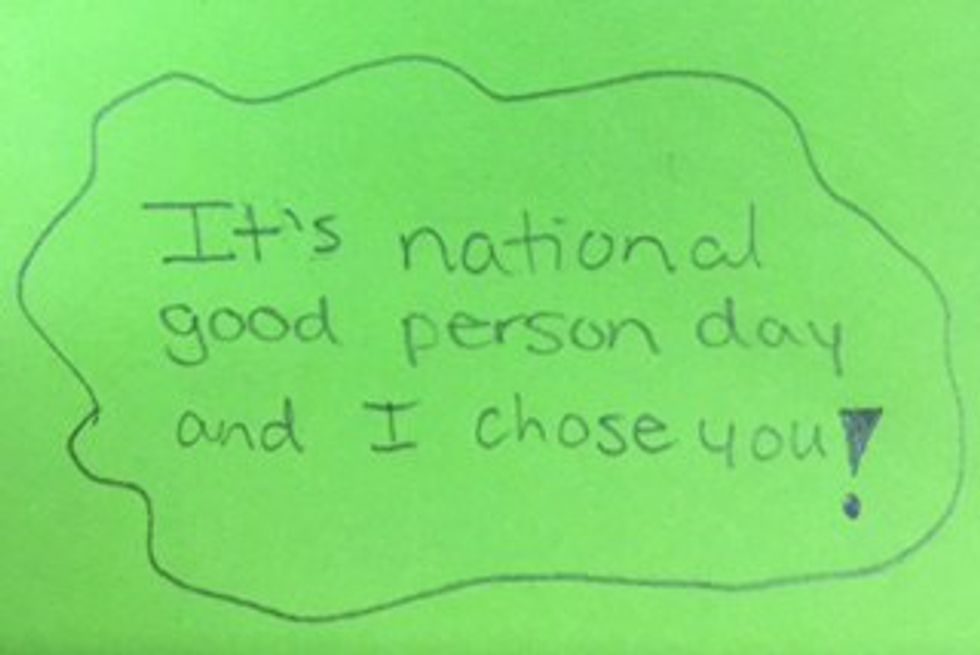 It's national
good person day
and I chose you!